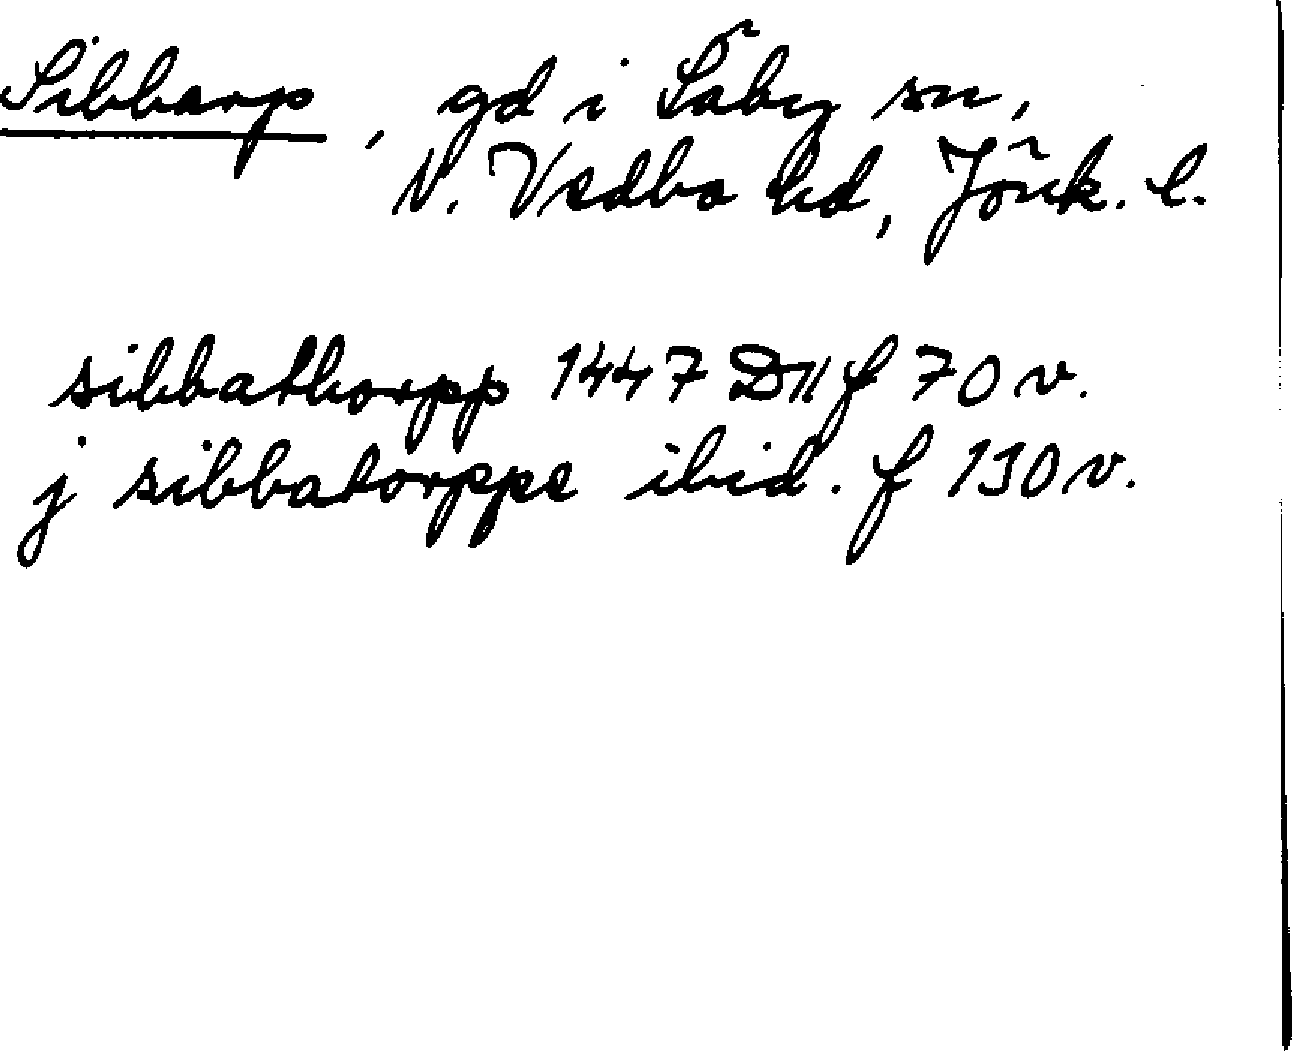 Sibbarp, gd i Säby sn,
N. Vedbo hd, Jönk. l.
sibbathorpp 1447 DII f 70 v.
j sibbatorppe ibid. f 130 v.